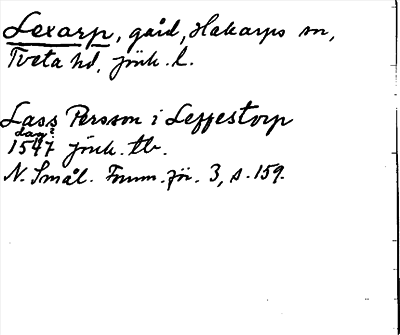 Lexarp, gård, Hakarps sn,
Tveta hd, Jönk. l.
Lass Persson i Leppestorp
dag?
1547 Jönk. tb.
N. Smål. Fornm. för. 3, s. 159.